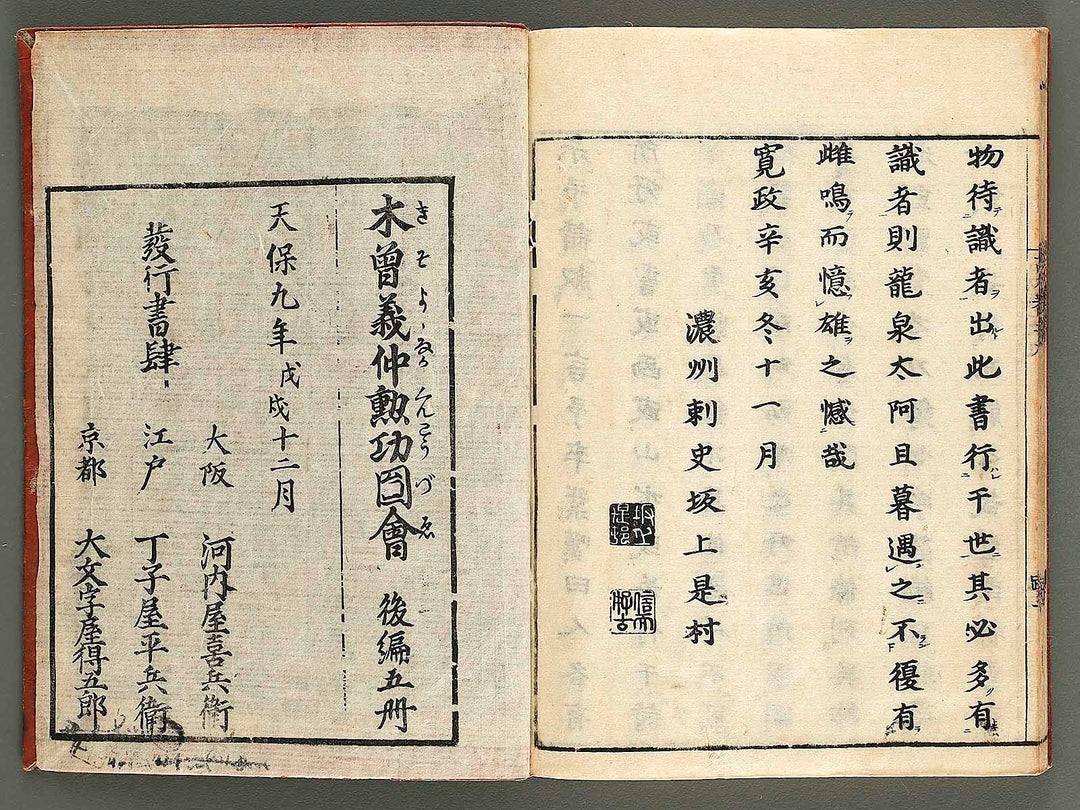 物待識者出此書行于世其必多有
識者則龍泉太阿且暮遇之不復有
雌鳴而憶雄之憾哉
寛政辛亥冬十一月
濃州刺史坂上是村
木曾義仲勲功図會 後編五冊
きそよしなかくんこうづゑ
天保九年戊戌十二月
發行書肆
大阪 河内屋喜兵衛
江戸 丁子屋平兵衛
京都 大文字屋得五郎